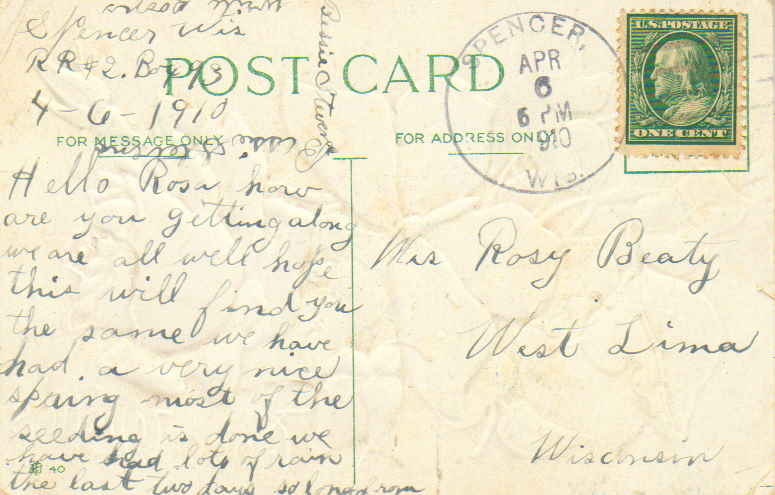 Spencer Wis
RR#2. Box 93
4-6-1910
POST CARD
FOR MESSAGE ONLY
FOR ADDRESS ONLY
SPENCER,
APR
6
6 PM
1910
WIS.
U.S. POSTAGE
ONE CENT
Hello Rosa how
are you getting along
we are all well hope
this will find you
the same we have
had a very nice
spring most of the
seeding is done we
have had lots of rain
the last two days so long from
Bessie
Mrs Rosy Beaty
West Lima
Wisconsin
40